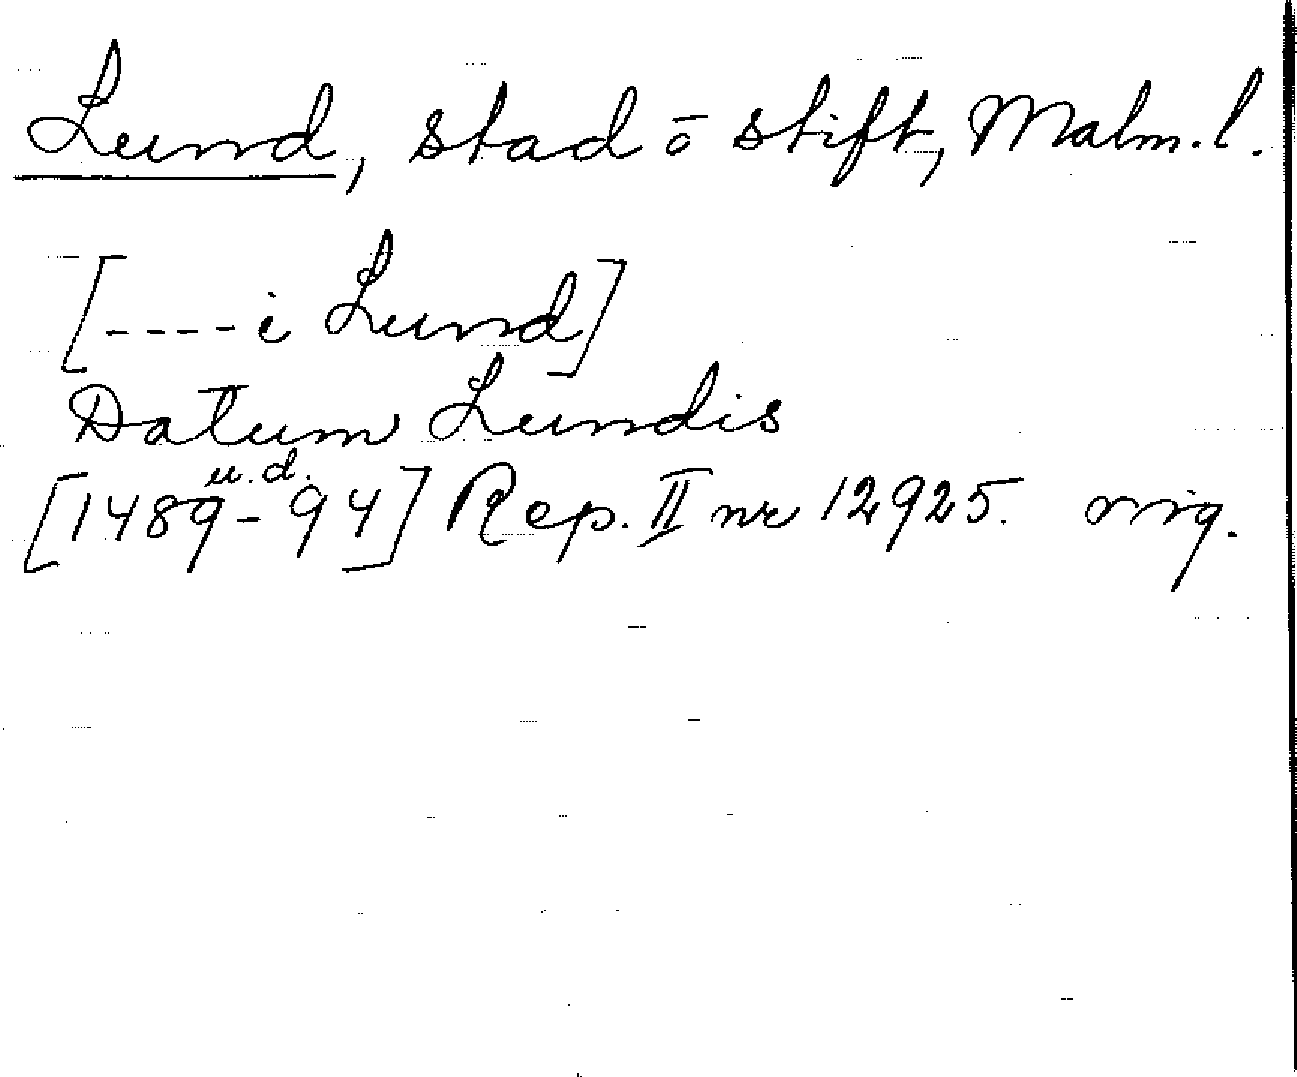 Lund, stad ō stift, Malm. l.
[---- i Lund]
Datum Lundis
u. d.
[1489-94] Rep. II nr 12925. orig.